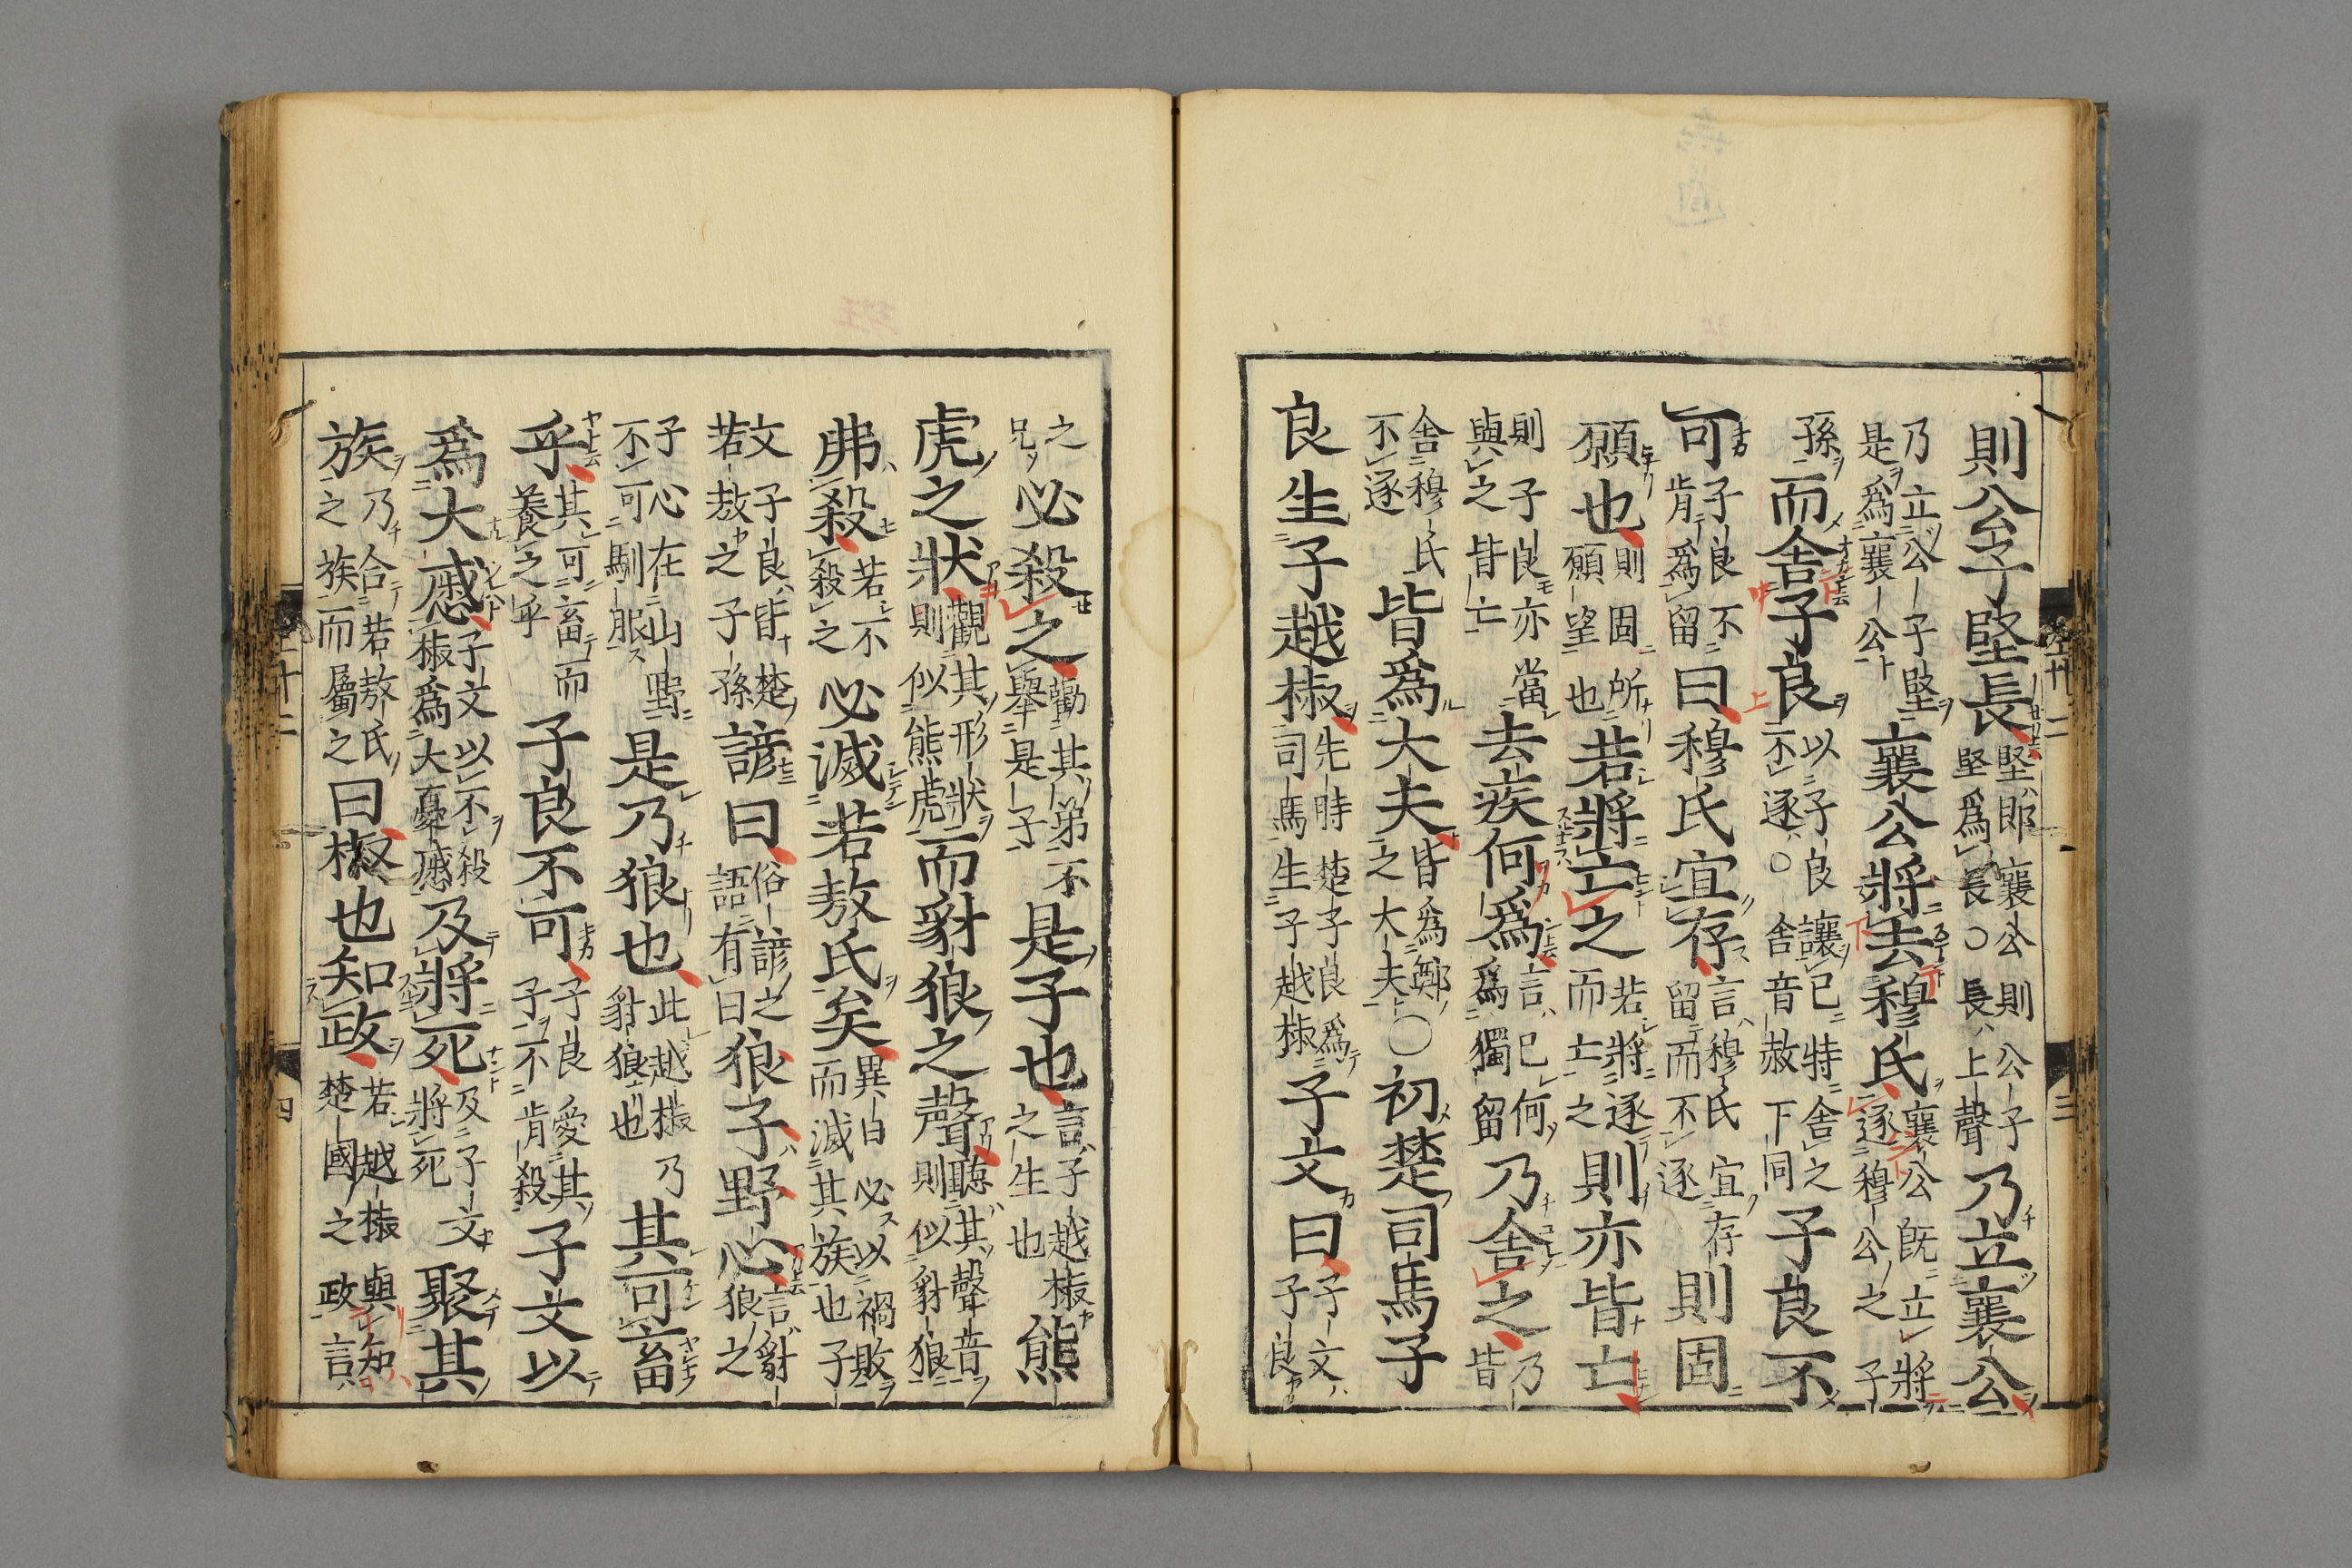 則公子堅長堅即襄公則公子堅爲長○長上聲乃立襄公
乃立公子堅是爲襄公襄公將去穆氏襄公既立將逐穆公之子
孫而舍子良以子良讓已特舍之不逐○舍音赦下同子良不
可子良不肯爲留曰穆氏宜存言穆氏宜存留而不逐則固
願也則固所願望也若將亡之若將逐而亡之則亦皆亡
則子良亦當與之皆亡去疾何爲言已何爲獨留乃舍之乃皆
舍穆氏不逐皆爲大夫皆爲鄭之大夫○初楚司馬子
良生子越椒先時楚子良爲司馬生子越椒子文曰子文子良
之兄必殺之勸其弟不舉是子是子也言子越椒之生也熊
虎之狀觀其形狀則似熊虎而豺狼之聲聽其聲音則似豺狼
弗殺若不殺之必滅若敖氏矣異日必以禍敗而滅其族也子
文子良皆楚若敖之子孫諺曰俗諺之語有曰狼子野心言豺狼之
子心在山野不可馴服是乃狼也此越椒乃豺狼也其可畜
乎其可畜而養之乎子良不可子良愛其子不肯殺子文以
爲大慼子文以不殺椒爲大憂慼及將死及子文將死聚其
族乃合若敖氏之族而屬之曰椒也知政若越椒與知楚國之政言